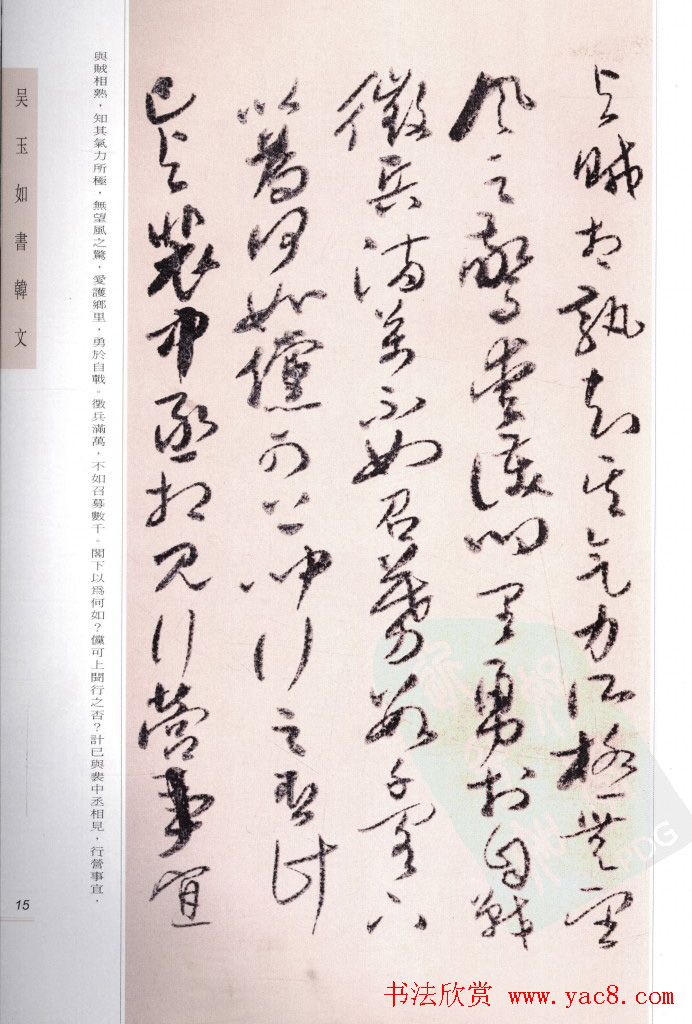 與賊相熟知其氣力所極無望
風之驚愛護鄉里勇於自戰
徵兵滿萬不如召募數千閣下
以為何如儻可上聞行之否計
已與裴中丞相見行營事宜
與賊相熟，知其氣力所極，無望風之驚，愛護鄉里，勇於自戰。徵兵滿萬，不如召募數千。閣下以爲何如？儻可上聞行之否？計已與裴中丞相見，行營事宜，
吴玉如書韓文
15
书法欣赏 www.yac8.com
PDG